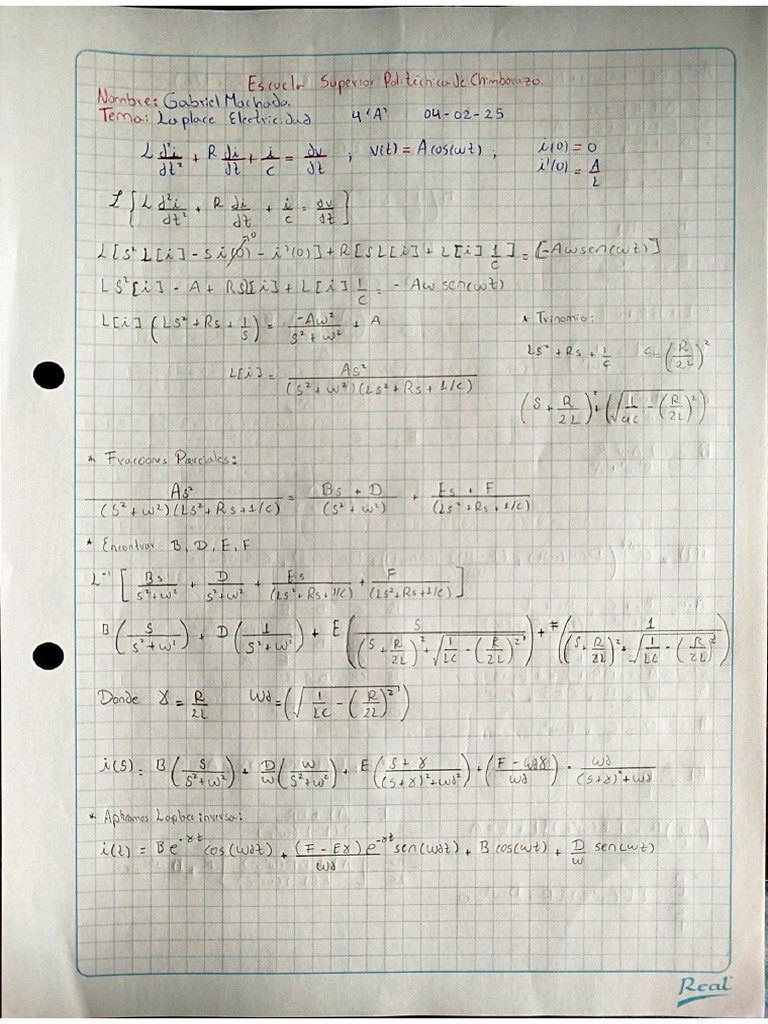 Escuela Superior Politécnica de Chimborazo.
Nombre: Gabriel Machado.
Tema: Laplace Electricidad 4 'A' 04-02-25
L d²i/dt² + R di/dt + i/c = dv/dt ; v(t) = A cos(wt) ; i(0) = 0
i'(0) = A/L
L { L d²i/dt² + R di/dt + i/c = dv/dt }
L[S² L[i] - S i(0) - i'(0)] + R[S L[i] + L[i] 1/C] = [-Aw sen(wt)]
0
LS²[i] - A + RS)[i] + L[i] 1/C = - Aw sen(wt)
L[i] (LS² + Rs + 1/S) = -Aw²/(S² + w²) + A
* Trinomio:
LS² + Rs + 1/c CL (R/2L)²
L[i] = As²/((S² + w²)(LS² + Rs + 1/C))
(S + R/2L)² + (√(1/LC - (R/2L)²))
* Fracciones Parciales:
As²/((S² + w²)(LS² + Rs + 1/C)) = (Bs + D)/(S² + w²) + (Es + F)/(LS² + Rs + 1/C)
* Encontrar B, D, E, F
L⁻¹ [ Bs/(S² + w²) + D/(S² + w²) + Es/(LS² + Rs + 1/C) + F/(LS² + Rs + 1/C) ]
B (S/(S² + w²)) + D (1/(S² + w²)) + E (S/((S + R/2L)² + √(1/LC - (R/2L)²))) + F (1/((S + R/2L)² + √(1/LC - (R/2L)²)))
Donde γ = R/2L Wd = (√(1/LC - (R/2L)²))
i(S) = B (S/(S² + w²)) + D/w (w/(S² + w²)) + E ((S + γ)/((S + γ)² + wd²)) + ((F - wdγ)/wd) · wd/((S + γ)² + wd)
* Aplicamos Laplace inversa:
i(t) = B e^-γt cos(wdt) + (F - Eγ) e^-γt/wd sen(wdt) + B cos(wt) + D/w sen(wt)
Real